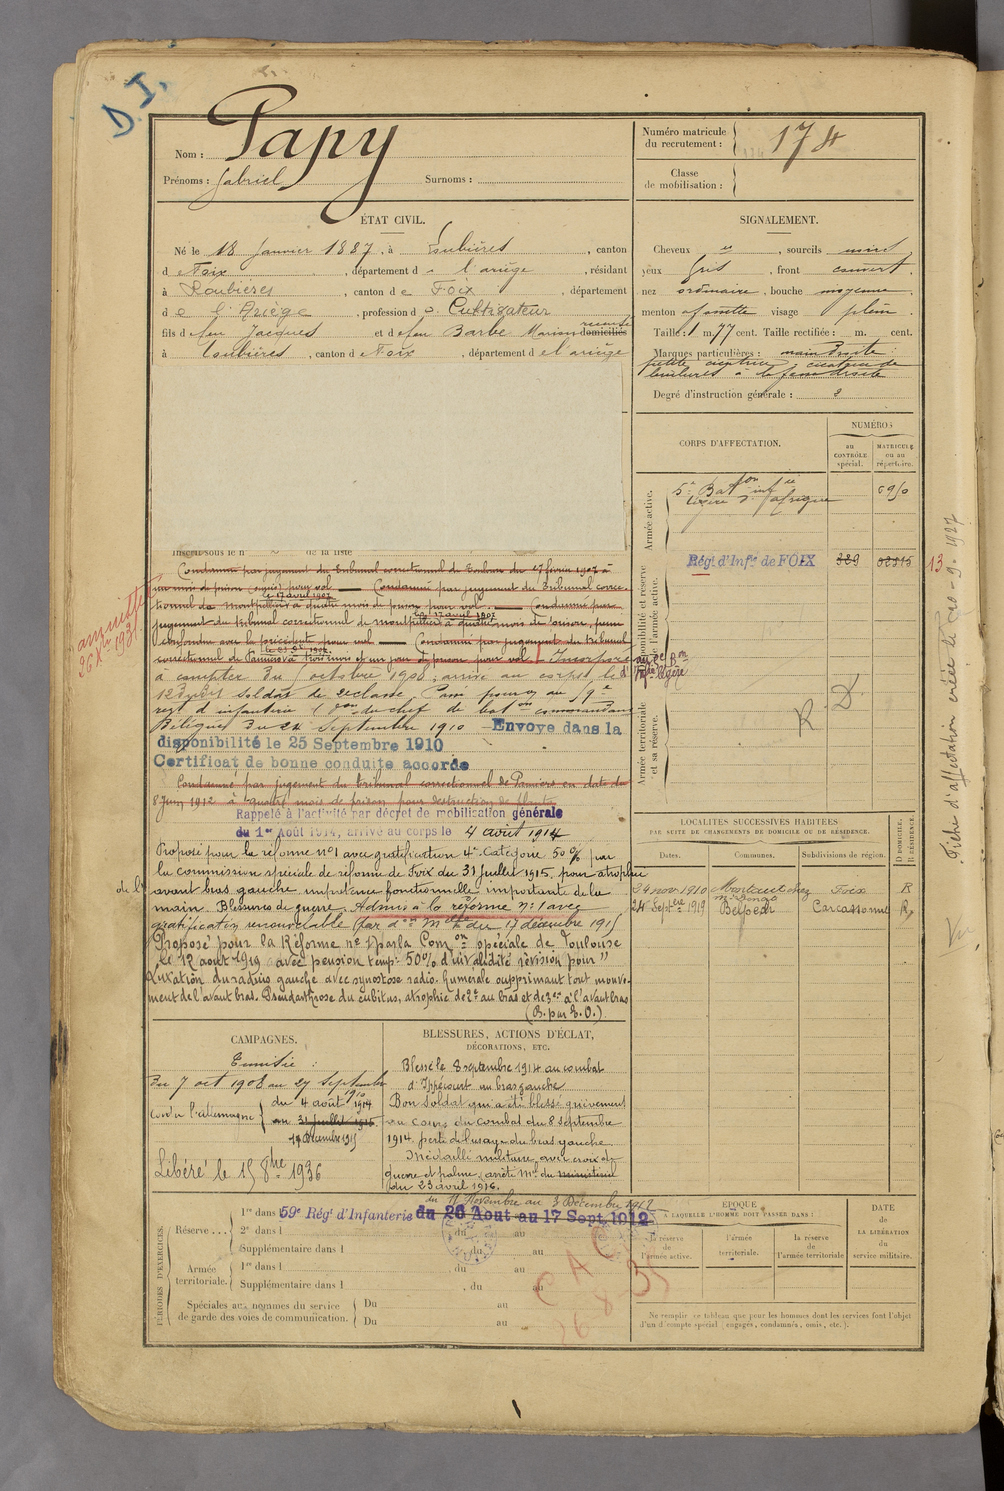 D.I.
Nom : Papy
Prénoms : Gabriel Surnoms :
Numéro matricule du recrutement : 174
Classe de mobilisation :
ÉTAT CIVIL.
Né le 18 Janvier 1887, à Loubières, canton
d Foix, département d l'ariège, résidant
à Loubières, canton de Foix, département
d e l'Ariège, profession d Cultivateur
fils de feu Jacques et de feu Barbe Marion domiciliés
à Loubières, canton d Foix, département d el'ariège
SIGNALEMENT.
Cheveux, sourcils noirs
yeux gris, front couvert.
nez ordinaire, bouche moyenne,
menton à fossette visage plein.
Taille : 1 m. 77 cent. Taille rectifiée : m. cent.
Marques particulières : main droite
petite cicatrice, cicatrice de
brûlures à la droite
Degré d'instruction générale : 2
CORPS D'AFFECTATION.
NUMÉROS
au CONTRÔLE spécial.
MATRICULE ou au répertoire.
Armée active.
5e Baton infie
légère d'afrique
Disponibilité et réserve de l'armée active.
Régt d'Infie de FOIX 329 13
Armée territoriale et sa réserve.
R D
Inscrit sous le n de la liste
Condamné par jugement du tribunal correctionnel de Toulouse du 27 février 1907 à
un mois de prison pour vol. — Condamné par jugement du Tribunal correc-
le 17 avril 1907
tionnel de Montpellier à quatre mois de prison pour vol. — Condamné par
le 17 avril 1907
jugement du tribunal correctionnel de Montpellier à quatre mois de prison, peine
confondue avec la précédente pour vol — Condamné par jugement du tribunal
correctionnel de Pamiers à trois mois et un jour de prison pour vol. Incorporé au 5e Bon
d'Infie légère
à compter du 7 octobre 1908, arrivé au corps le
12 dudit soldat de 2e classe. Passé au 59e
regt d'infanterie du chef de baton commandant
Bélègues du 24 septembre 1910 — Envoyé dans la
disponibilité le 25 Septembre 1910
Certificat de bonne conduite accordé
Condamné par jugement du tribunal correctionnel de Pamiers en date du
8 Juin 1912 à quatre mois de prison pour destruction de plants
Rappelé à l'activité par décret de mobilisation générale
du 1er Août 1914, arrivé au corps le 4 août 1914
Proposé pour la réforme n°1 avec gratification 4e Catégorie 50% par
la commission spéciale de réforme de Foix du 31 juillet 1915, pour atrophie
de l'avant bras gauche impotence fonctionnelle importante de la
main. Blessures de guerre. Admis à la réforme n°1 avec
gratification renouvelable (par don Melle du 17 décembre 1915
Proposé pour la Réforme n° 1 par la Comon spéciale de Toulouse
le 12 août 1919 avec pension temp. 50% d'invalidité révision pour "
Luxation du radius gauche avec synostose radio-humérale supprimant tout mouve-
ment de l'avant bras. Pseudarthrose du cubitus, atrophie de 2c au bras et de 3c à l'avant bras
annuité
26 Xbre 1931
LOCALITÉS SUCCESSIVES HABITÉES
PAR SUITE DE CHANGEMENTS DE DOMICILE OU DE RÉSIDENCE.
Dates. Communes. Subdivisions de région. D DOMICILE. R RÉSIDENCE.
24 nov. 1910 Foix R
24 Septbre 1919 Belpech Carcassonne R
CAMPAGNES.
Tunisie :
du 7 oct 1908 au 27 septembre 1910
contre l'allemagne du 4 août 1914
au 31 juillet 1915
17 décembre 1915
Libéré le 15 8bre 1936
BLESSURES, ACTIONS D'ÉCLAT,
DÉCORATIONS, ETC.
Blessé le 8 septembre 1914 au combat
d'Ippécourt au bras gauche
Bon soldat qui a été blessé grièvement
au cours du combat du 8 septembre
1914, perte de l'usage du bras gauche.
Médaillé militaire avec croix de
guerre et palme, arrêté Mel du ministériel
du 23 avril 1916.
PÉRIODES D'EXERCICES.
Réserve...
du 11 Novembre au 3 Décembre 1912
1re dans l 59e Régt d'Infanterie du 26 Aout au 17 Sept 1912
2e dans l , du au
Supplémentaire dans l , du au
Armée territoriale.
1re dans l , du au
Supplémentaire dans l , du au
Spéciales aux hommes du service
de garde des voies de communication.
Du au
Du au
CAC
26-8-35
ÉPOQUE
À LAQUELLE L'HOMME DOIT PASSER DANS :
la réserve de l'armée active.
l'armée territoriale.
la réserve de l'armée territoriale
DATE
de
LA LIBÉRATION
du
service militaire.
Ne remplir ce tableau que pour les hommes dont les services font l'objet
d'un décompte spécial (engagés, condamnés, omis, etc.).
Fiche d'affectation créée le 20-9-1927
Vu